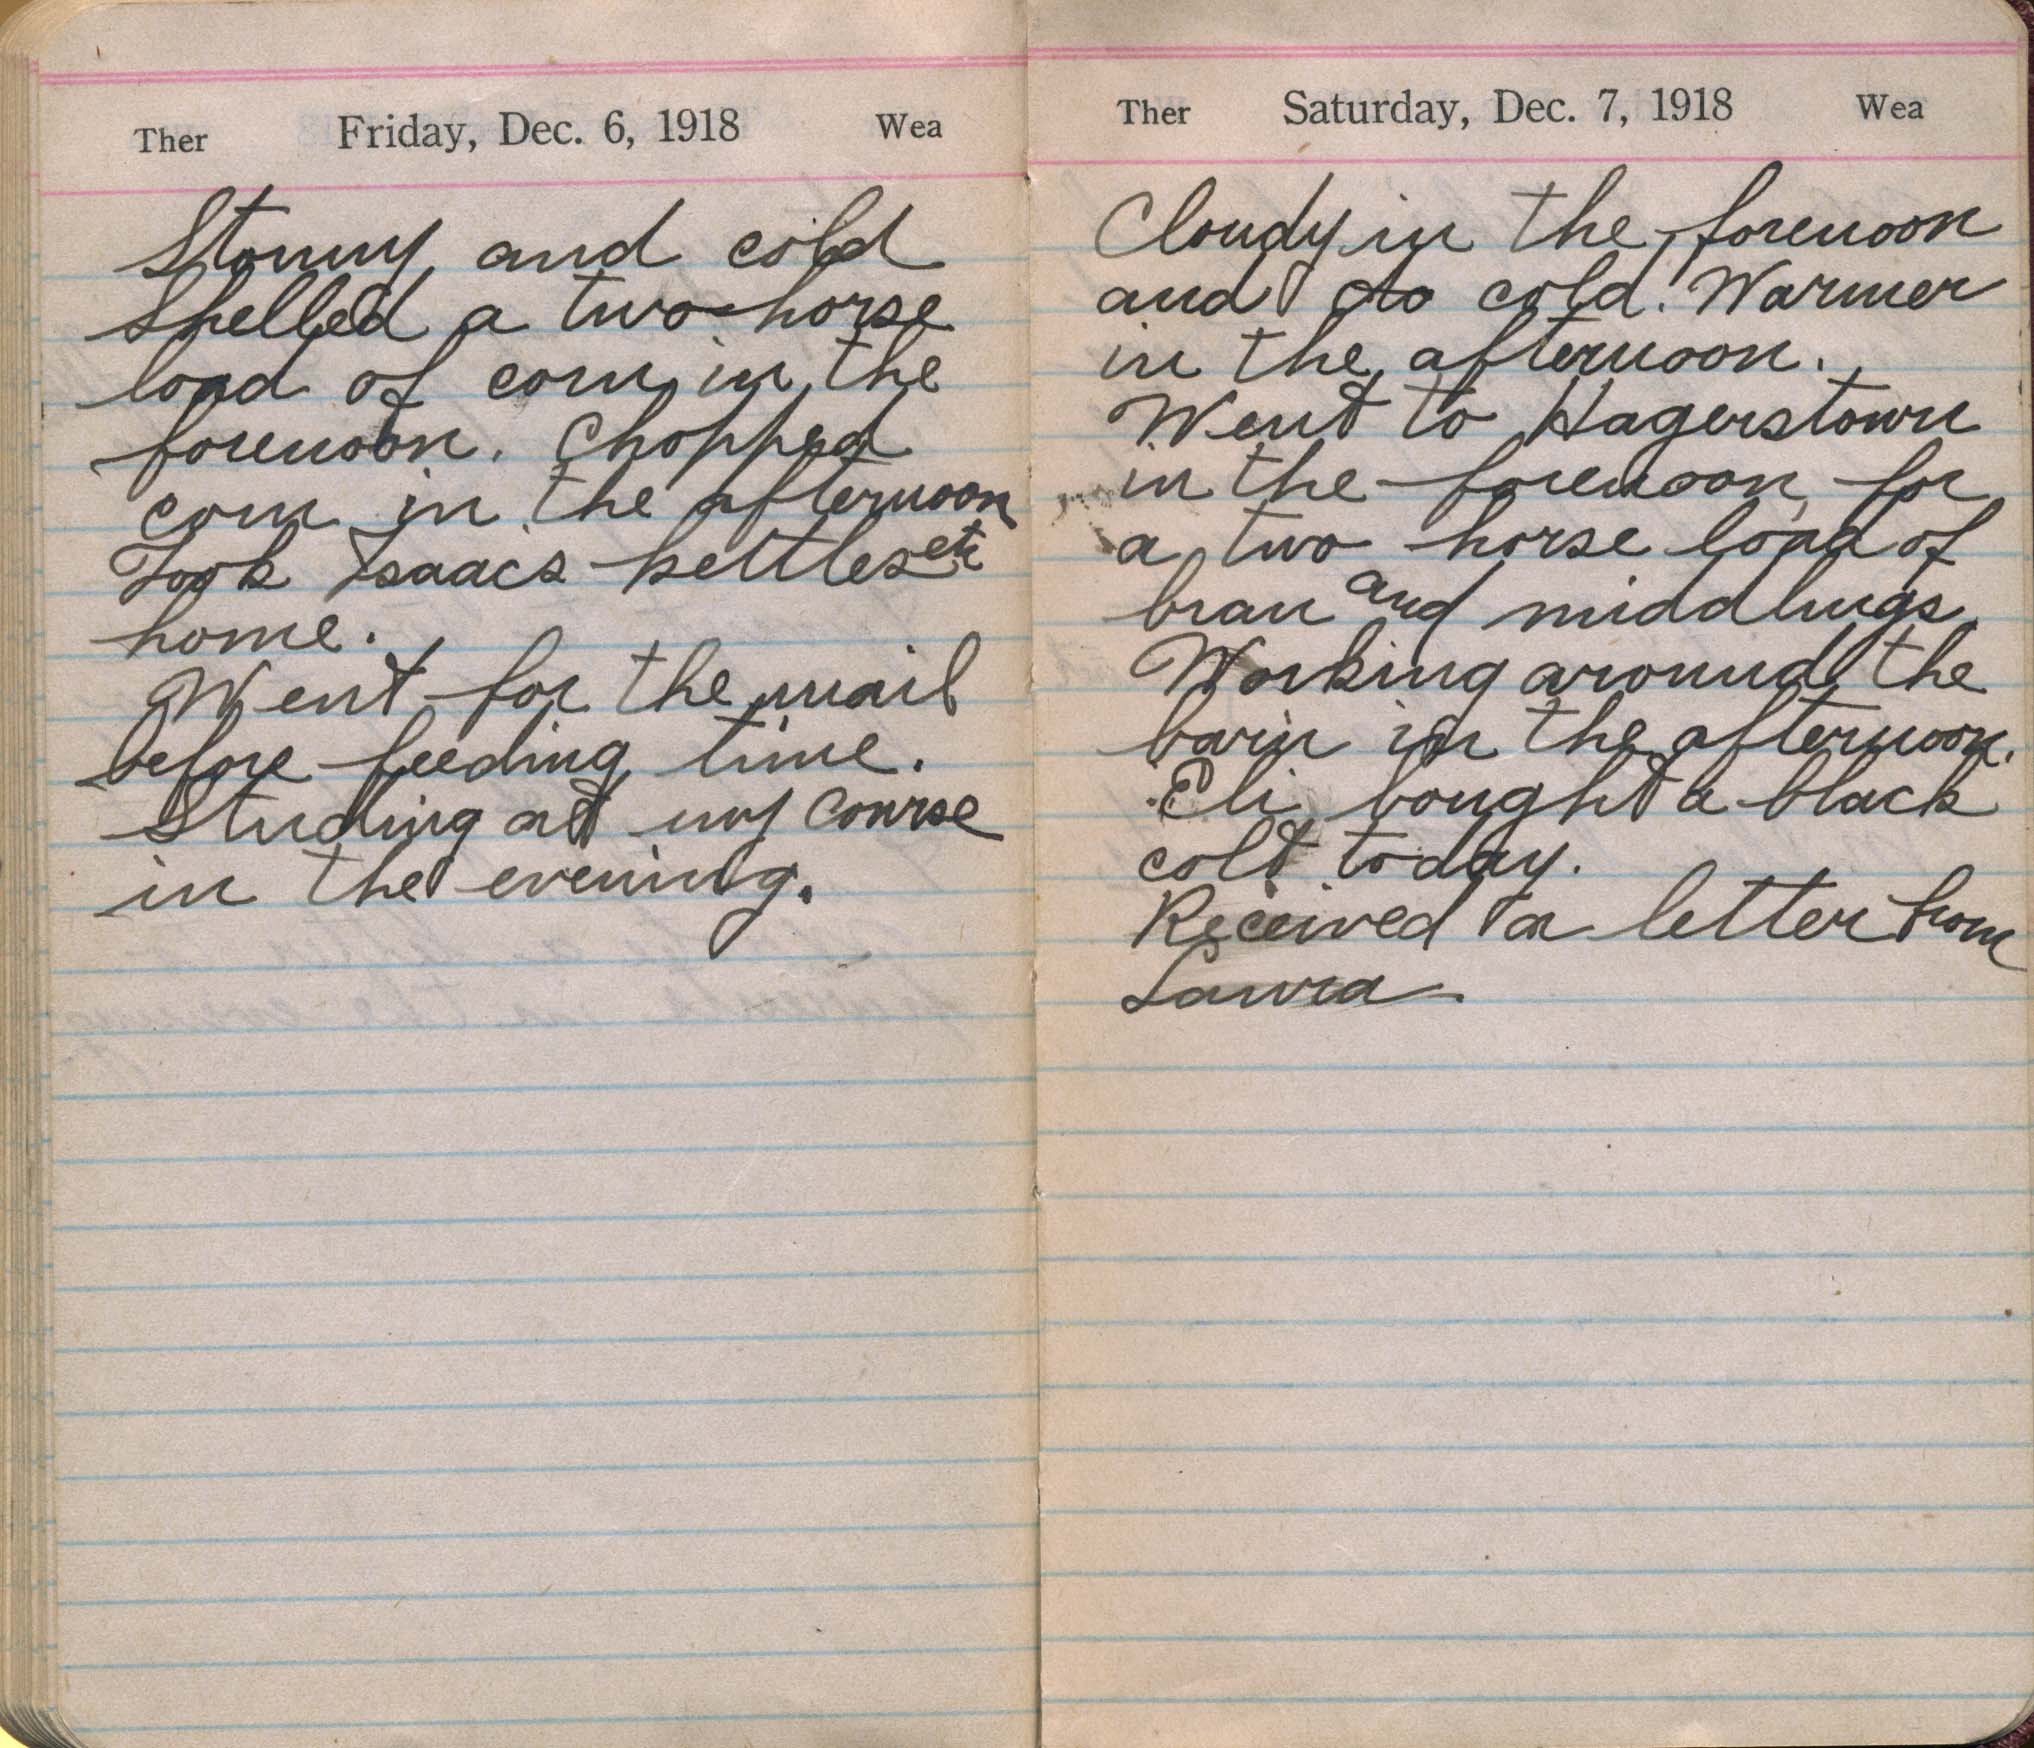 Ther Friday, Dec. 6, 1918 Wea
Stormy and cold
Shelled a two-horse
load of corn in the
forenoon. Chopped
corn in the afternoon
Took Isaacs kettles etc
home.
Went for the mail
before feeding time.
Studing at my course
in the evening.
Ther Saturday, Dec. 7, 1918 Wea
Cloudy in the forenoon
and cold. Warmer
in the afternoon.
Went to Hagerstown
in the forenoon for
a two horse load of
bran and middlings
Working around the
barn in the afternoon.
Eli bought a black
colt today.
Received a letter from
Laura.